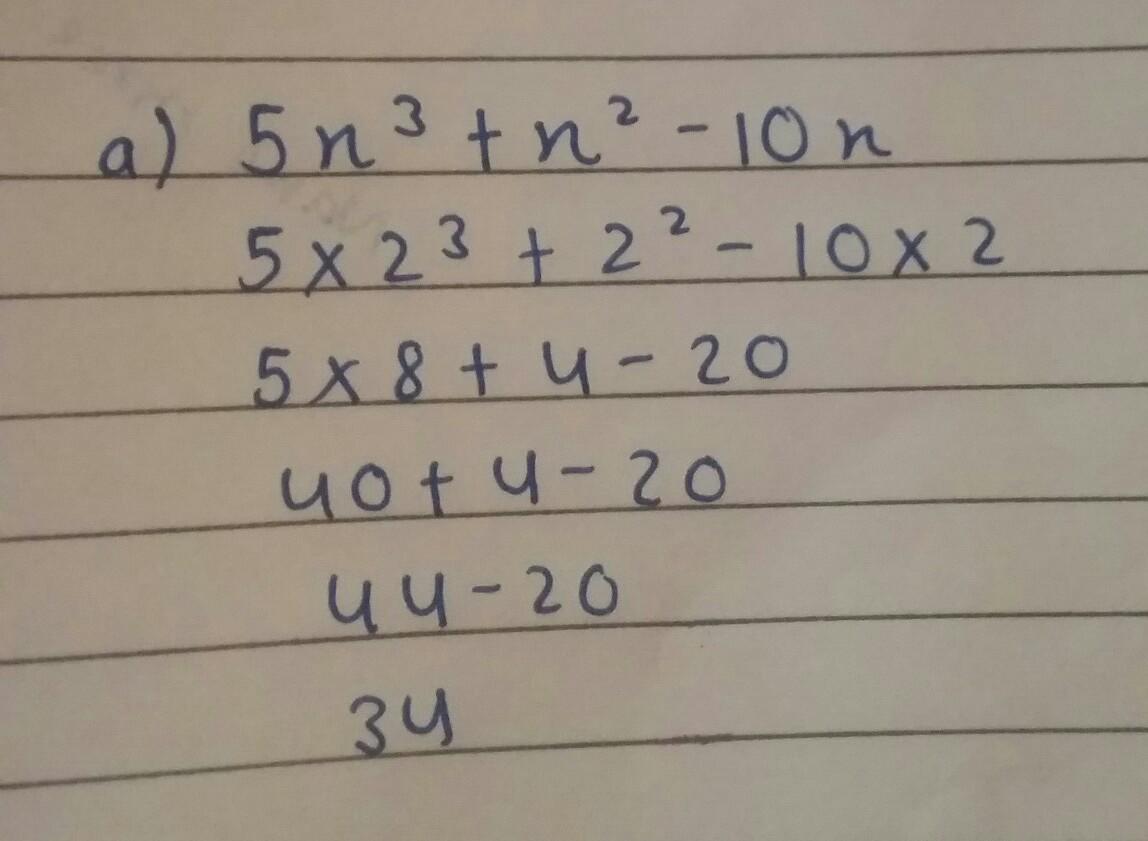 a) 5n³ + n² - 10n
5 × 2³ + 2² - 10 × 2
5 × 8 + 4 - 20
40 + 4 - 20
44 - 20
34